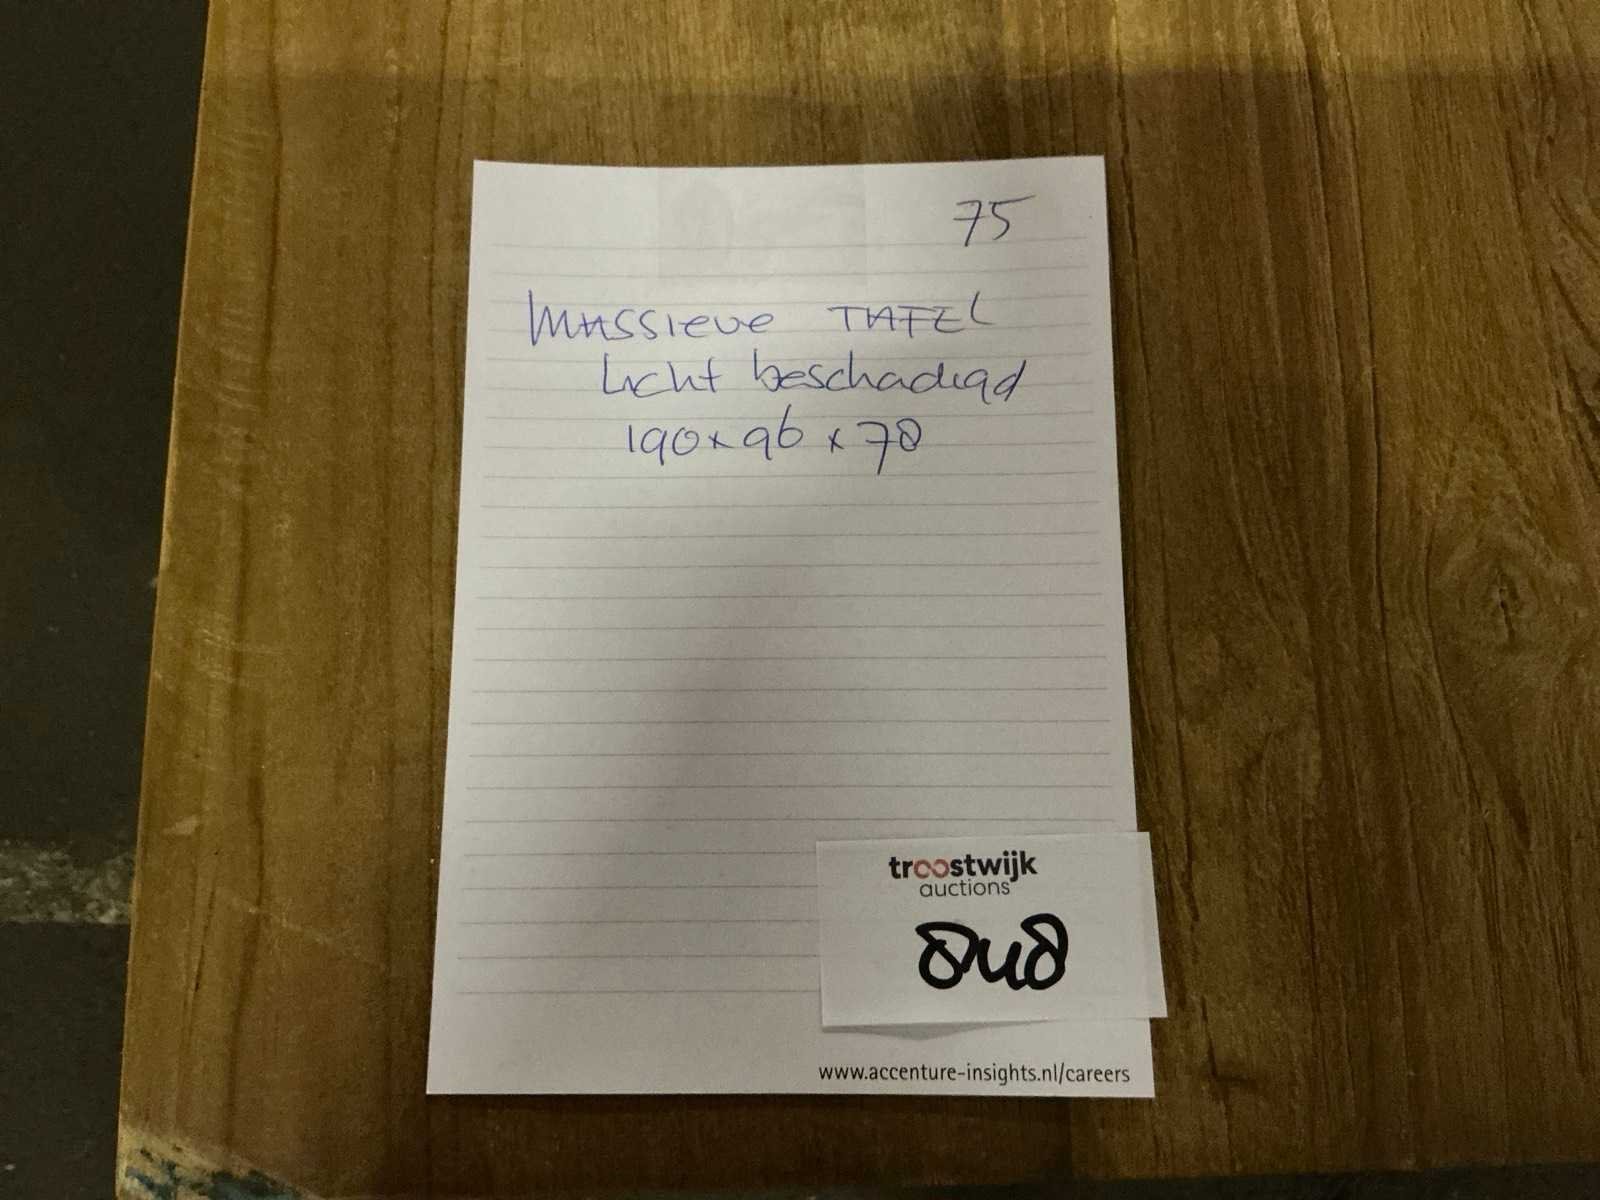 75
MASSIEVE TAFEL
licht beschadigd
190 x 96 x 78
troostwijk
auctions
www.accenture-insights.nl/careers